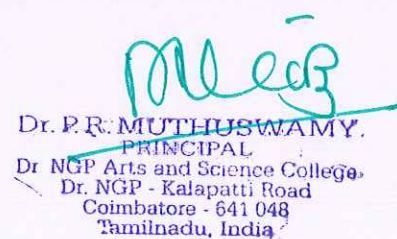 Dr. P.R. MUTHUSWAMY.
PRINCIPAL
Dr NGP Arts and Science College
Dr. NGP - Kalapatti Road
Coimbatore - 641 048
Tamilnadu, India